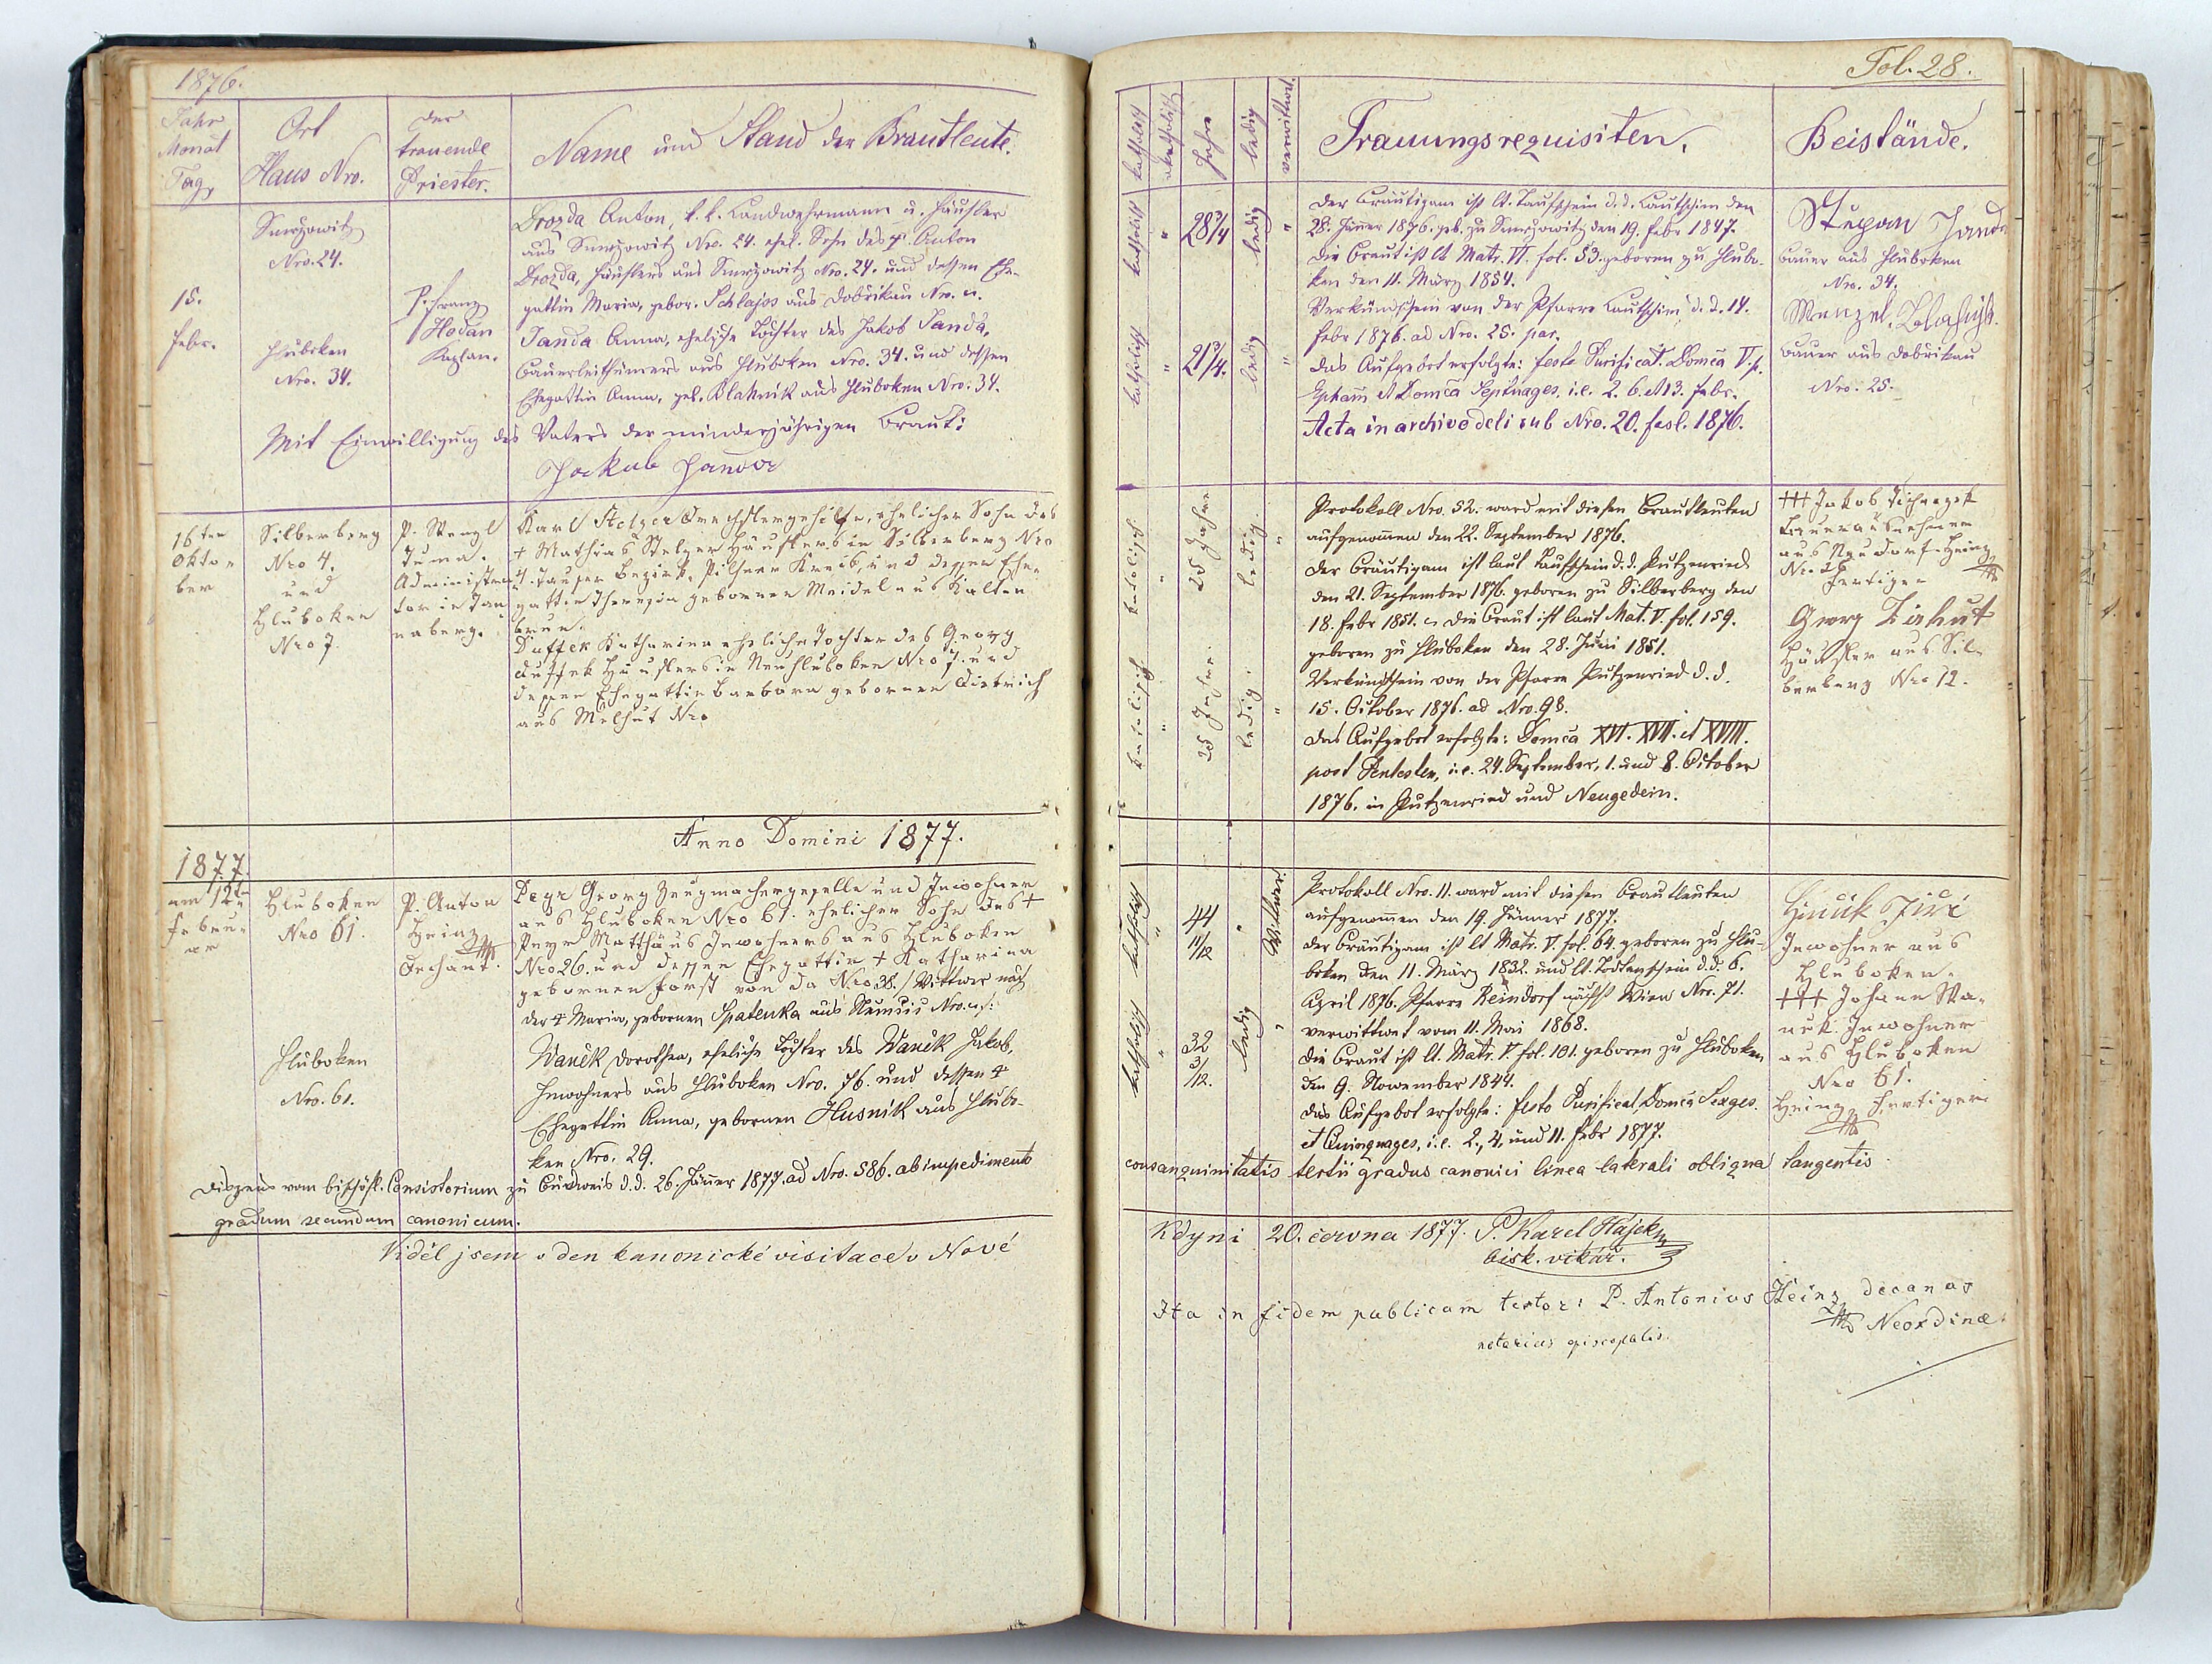 1876.
Jahr
Monat
Tag,
Ort
Haus Nro.
der
trauende
Priester.
Name und Stand der Brautleute.
15.
Febr.
Nro. 24.
Hluboken
Nro. 34.
P. Franz
Hodan
Kaplan.
Drozda Anton, k. k. Landwehrmann u. Häusler
aus Nro. 24. ehel. Sohn des † Anton
Drozda, Häuslers aus Nro. 24. und dessen Ehe-
gattin Maria, gebor. Schlajos aus Dobřikau Nro.
Janda Anna, eheliche Tochter des Jakob Janda,
aus Hluboken Nro. 34. und dessen
Ehegattin Anna, geb. Blahnik aus Hluboken Nro. 34.
Mit Einwilligung des Vaters der minderjährigen Braut:
16ten
Okto-
ber
Silberberg
Nro 4.
und
Hluboken
Nro 7.
P. Wenzl
Tuma.
Administra-
tor in Tan
naberg.
Karl Stelzer Drechslergehilfe, ehelicher Sohn des
† Mathias Stelzer Häuslers in Silberberg Nro
4. Tauser Bezirk, Pilsner Kreis, und dessen Ehe-
gattin Theresia gebornen Meidel aus Kalten
brun.
Duffek Katharina eheliche Tochter des Georg
Duffek Häuslers in Neuhluboken Nro 7. und
dessen Ehegattin Barbara gebornen Dietrich
aus Melhut Nro
Anno Domini 1877.
1877.
am 12t
Febru-
ar
Hluboken
Nro 61.
P. Anton
Heinz
Dechant.
Peyr Georg Zeugmachergeselle und Inwohner
aus Hluboken Nro 61. ehelicher Sohn des †
Peyr Matthäus Inwohners aus Hluboken
Nro 26. und dessen Ehegattin † Katharina
gebornen Forst von da Nro 38. / Wittwer nach
der † Maria, gebornen Spatenka aus Nro.
Hluboken
Nro. 61.
Waněk Dorothea, eheliche Tochter des Waněk Jakob,
Inwohners aus Hluboken Nro. 76. und dessen †
Ehegattin Anna, gebornen Husnik aus Hlubo-
ken Nro. 29.
Dispens vom bischöfl. Consistorium zu Budweis d.d. 26. Jäner 1877. ad Nro. 586. ab impedimento
gradum secundum canonicum.
Viděl jsem v den kanonické visitace v Nové
Fol. 28.
katholisch
akatholisch
Jahre
ledig
verwittwet
Trauungsrequisiten.
Beistände.
katholisch
"
28 3/4
ledig
"
katholisch
"
21 3/4.
ledig
"
Der Bräutigam ist lt. Taufschein d. d. Lautschim den
28. Jäner 1876. geb. zu den 19. Febr 1847.
Die Braut ist lt Matr. VI. fol. 53. geboren zu Hlubo-
ken den 11. März 1854.
Verkündschein von der Pfarre Lautschim d. d. 14.
Febr 1876. ad Nro. 25. par.
Das Aufgebot erfolgte: festo Purificat. Domca V. p.
Epham et Domca Septuages. i.e. 2. 6. et 13. Febr.
Acta in archivo deli sub Nro. 20. fasl. 1876.
Janda
Bauer aus Hluboken
Nro. 34.
Wenzel
Bauer aus Dobřikau
Nro. 25.
katolisch
"
25 Jahre
ledig.
"
katolisch
"
25 Jahre.
ledig.
"
Protokoll Nro. 52. ward mit diesen Brautleuten
aufgenommen den 22. September 1876.
Der Bräutigam ist laut Taufschein d. d. Putzenried
den 21. September 1876. geboren zu Silberberg den
18. Febr 1851. Die Braut ist laut Mat. V. fol. 159.
geboren zu Hluboken den 28. Juni 1851.
Verkündschein von der Pfarre Putzenried d. d.
15. October 1876. ad Nro. 98.
Das Aufgebot erfolgte: Domca XVI. XVII. et XVIII.
post Pentesten, i.e. 24. September, 1. und 8. October
1876. in Putzenried und Neugedein.
+++ Jakob
aus Neudorf. Heinz
Fertiger
Georg
Häusler aus Sil-
berberg Nro 12.
katholisch
"
44
11/12
"
Wittwer
katholisch
"
32
3/12.
ledig
"
Protokoll Nro. 11. ward mit diesen Brautleuten
aufgenommen den 19. Jänner 1877.
Der Bräutigam ist lt Matr. V. fol. 64. geboren zu Hlu-
boken den 11. März 1832. und lt. Todtenschein d. d. 6.
April 1876. Pfarre Reindorf nächst Wien Nro. 71.
verwittwet vom 11. Mai 1868.
Die Braut ist lt. Matr. V. fol. 101. geboren zu Hluboken
den 9. Nowember 1844.
Das Aufgebot erfolgte: festo Purificat, Domca Sexages.
et Quinquages, i.e. 2., 4. und 11. Febr 1877.
Jiří
Inwohner aus
Hluboken.
+++ Johann Wa-
nek. Inwohner
aus Hluboken
Nro 61.
Heinz Fertiger
consanguinitatis tertii gradus canonici linea laterali obliqua tangentis
Kdyni 20. června 1877. P. Karel Hájek
bisk. vikář.
Ita in fidem publicam testor: P. Antonius Heinz decanus
notarius episcopalis.